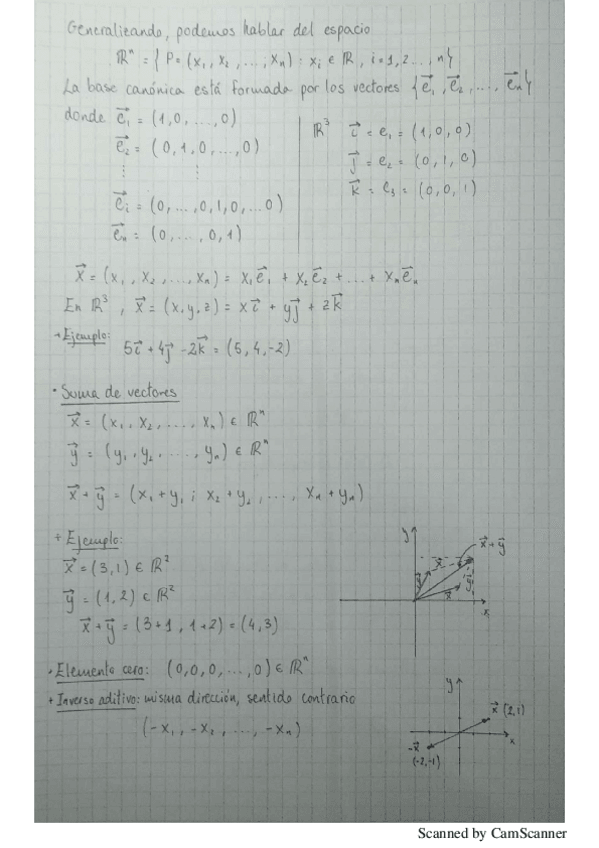 Generalizando, podemos hablar del espacio
ℝⁿ = { P = (x₁, x₂, ..., xₙ) : xᵢ ∈ ℝ, i = 1, 2 ..., n }
La base canónica está formada por los vectores {e⃗₁, e⃗₂, ..., e⃗ₙ}
donde e⃗₁ = (1,0, ...,0)
e⃗₂ = (0,1,0, ...,0)
⋮ ⋮
e⃗ᵢ = (0, ...,0,1,0, ...0)
e⃗ₙ = (0, ..., 0,1)
ℝ³ i⃗ = e₁ = (1,0,0)
j⃗ = e₂ = (0,1,0)
k⃗ = e₃ = (0,0,1)
x⃗ = (x₁, x₂, ..., xₙ) = x₁e⃗₁ + x₂e⃗₂ + ... + xₙe⃗ₙ
En ℝ³, x⃗ = (x,y,z) = xi⃗ + yj⃗ + zk⃗
+ Ejemplo:
5i⃗ + 4j⃗ - 2k⃗ = (5, 4, -2)
• Suma de vectores
x⃗ = (x₁, x₂, ..., xₙ) ∈ ℝⁿ
y⃗ = (y₁, y₂, ..., yₙ) ∈ ℝⁿ
x⃗ + y⃗ = (x₁ + y₁ ; x₂ + y₂, ..., xₙ + yₙ)
+ Ejemplo:
x⃗ = (3,1) ∈ ℝ²
y⃗ = (1,2) ∈ ℝ²
x⃗ + y⃗ = (3+1, 1+2) = (4,3)
y
x⃗ + y⃗
x⃗
y⃗
x⃗
y⃗
x
• Elemento cero: (0,0,0, ...,0) ∈ ℝⁿ
+ Inverso aditivo: misma dirección, sentido contrario
(-x₁, -x₂, ..., -xₙ)
y
x⃗ (2,1)
x
-x⃗
(-2,-1)
Scanned by CamScanner